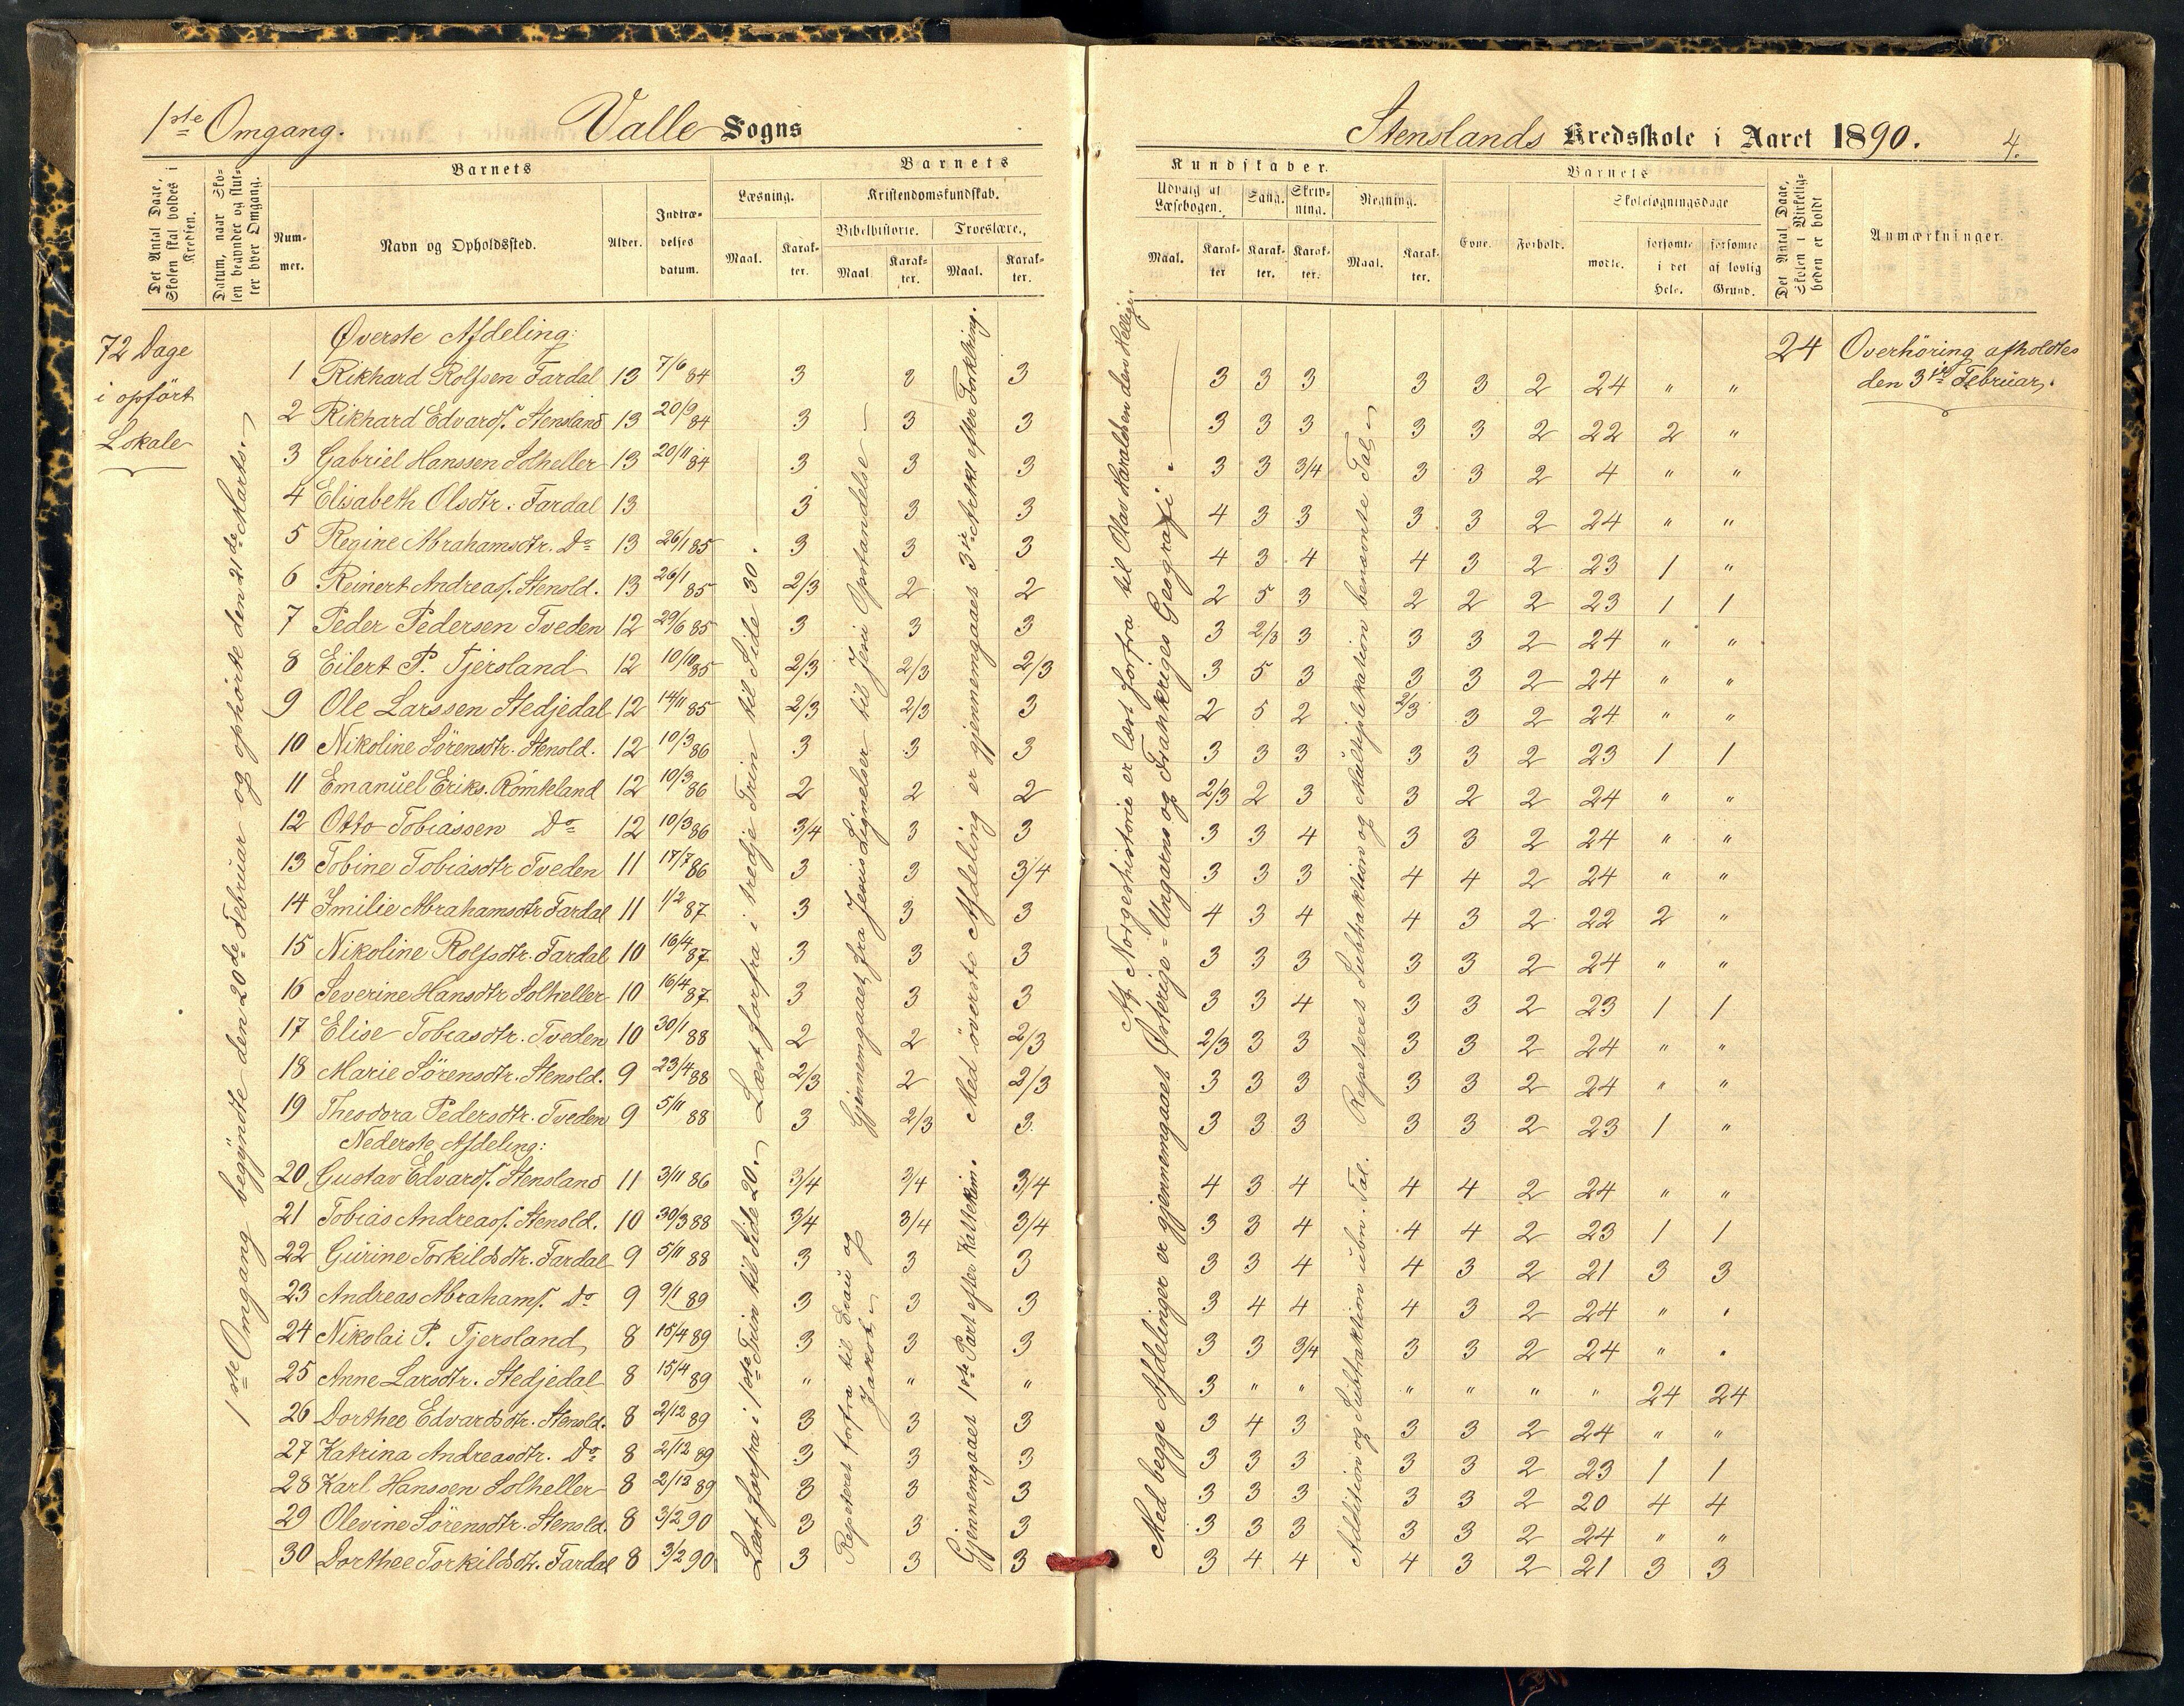 1ste Omgang. Valle Sogns
Stenslands Kredsskole i Aaret 1890. 4.
Det Antal Dage, Skolen skal holdes i Kredsen.
Datum, naar Skolen begynder og slutter hver Omgang.
Barnets
Nummer.
Navn og Opholdssted.
Alder.
Indtrædelses datum.
Barnets
Læsning.
Maal.
Karakter.
Kristendomskundskab.
Bibelhistorie.
Maal.
Karakter.
Troeslære.
Maal.
Karakter.
Kundskaber.
Udvalg af Læsebogen.
Maal.
Karakter
Sang.
Karakter.
Skrivning.
Karakter.
Regning.
Maal.
Karakter.
Barnets
Evne.
Forhold.
Skolesøgningsdage
mødte.
forsømte i det Hele.
forsømte af lovlig Grund.
Det Antal Dage, Skolen i Virkeligheden er holdt
Anmærkninger.
72 Dage
i opfört
Lokale
1ste Omgang begyndte den 20de Februar og ophørte den 21de Marts.
Øverste Afdeling:
24 Overhöring afholdtes
den 3die Februar.
1 Rikhard Rolfsen Fardal 13 7/6 84 3 2 3 3 3 3 3 3 2 24 " "
2 Rikhard Edvards. Stensland 13 20/9 84 3 3 3 3 3 3 3 3 2 22 2 "
3 Gabriel Hanssen Solheller 13 20/11 84 3 3 3 3 3 3/4 3 3 2 4 " "
4 Elisabeth Olsdtr. Fardal 13 3 3 3 4 3 3 3 3 2 24 " "
5 Regine Abrahamsdtr. Do 13 26/1 85 3 3 3 4 3 4 4 3 2 23 1 "
6 Reinert Andreass. Stensld. 13 26/1 85 2/3 2 2 2 5 3 2 2 2 23 1 1
7 Peder Pedersen Tveden 12 29/6 85 3 3 3 3 2/3 3 3 3 2 24 " "
8 Eilert P. Tjersland 12 10/10 85 2/3 2/3 2/3 3 5 3 3 3 2 24 " "
9 Ole Larssen Stedjedal 12 14/11 85 2/3 2/3 3 2 5 2 2/3 3 2 24 " "
10 Nikoline Sörensdtr. Stensld. 12 10/3 86 3 3 3 3 3 3 3 3 2 23 1 1
11 Emanuel Eriks. Römteland 12 10/3 86 2 2 2 2/3 2 3 3 2 2 24 " "
12 Otto Tobiassen Do 12 10/3 86 3/4 3 3 3 3 4 3 3 2 24 " "
13 Tobine Tobiasdtr Tveden 11 17/7 86 3 3 3/4 3 3 3 4 4 2 24 " "
14 Imilie Abrahamsdtr Fardal 11 1/2 87 3 3 3 4 3 4 4 3 2 22 2 "
15 Nikoline Rolfsdtr. Fardal 10 16/4 87 3 3 3 3 3 3 3 3 2 24 " "
16 Severine Hansdtr Solheller 10 16/4 87 3 3 3 3 3 4 3 3 2 23 1 1
17 Elise Tobiasdtr. Tveden 10 30/1 88 2 2 2/3 2/3 3 3 3 3 2 24 " "
18 Marie Sörensdtr. Stensld. 9 23/4 88 2/3 2 2/3 3 3 3 3 3 2 24 " "
19 Theodora Pedersdtr. Tveden 9 5/11 88 3 2/3 3 3 3 3 3 3 2 23 1 "
Nederste Afdeling:
20 Gustav Edvards. Stensland 11 3/11 86 3/4 3/4 3/4 4 3 4 4 4 2 24 " "
21 Tobias Andreass. Stensld. 10 30/3 88 3/4 3/4 3/4 3 3 4 4 4 2 23 1 1
22 Gurine Torkildsdtr. Fardal 9 5/11 88 3 3 3 3 3 4 4 3 2 21 3 3
23 Andreas Abrahams. Do 9 9/1 89 3 3 3 3 4 4 4 3 2 24 " "
24 Nikolai P. Tjersland 8 15/4 89 3 3 3 3 3 3/4 3 3 2 24 " "
25 Anne Larsdtr. Stedjedal 8 15/4 89 " " " 3 " " " " " " 24 24
26 Dorthee Edvardsdtr. Stensld. 8 2/12 89 3 3 3 3 4 3 3 3 2 24 " "
27 Katrina Andreasdtr. Do 8 2/12 89 3 3 3 3 3 3 3 3 2 23 1 1
28 Karl Hanssen Solheller 8 2/12 89 3 3 3 3 3 3 3 3 2 20 4 4
29 Olevine Sörensdtr. Stensld. 8 3/2 90 3 3 3 3 3 3 3 3 2 24 " "
30 Dorthee Torkildsdtr. Fardal 8 3/2 90 3 3 3 3 4 4 4 3 2 21 3 3
Læst forfra i tredje Trin til Side 30.
Læst forfra i 1ste Trin til Side 20.
Gjennemgaaet fra Jesus Lignelser til Jesu Opstandelse
Repeteret forfra til Esau og
Jakob.
Med øverste Afdeling er gjennemgaaet 3die Artikl efter Forklaring.
Gjennemgaaet 1ste Part efter Katekism.
Af Norgeshistorie er læst forfra til Olav Haraldsen den Hellige.
Med begge Afdelinger er gjennemgaaet Østerige-Ungarns og Frankriges Geografi.
Repeteret Subtraktion og Multiplikation benævnte Tal
Addition og Subtraktion ubn. Tal.